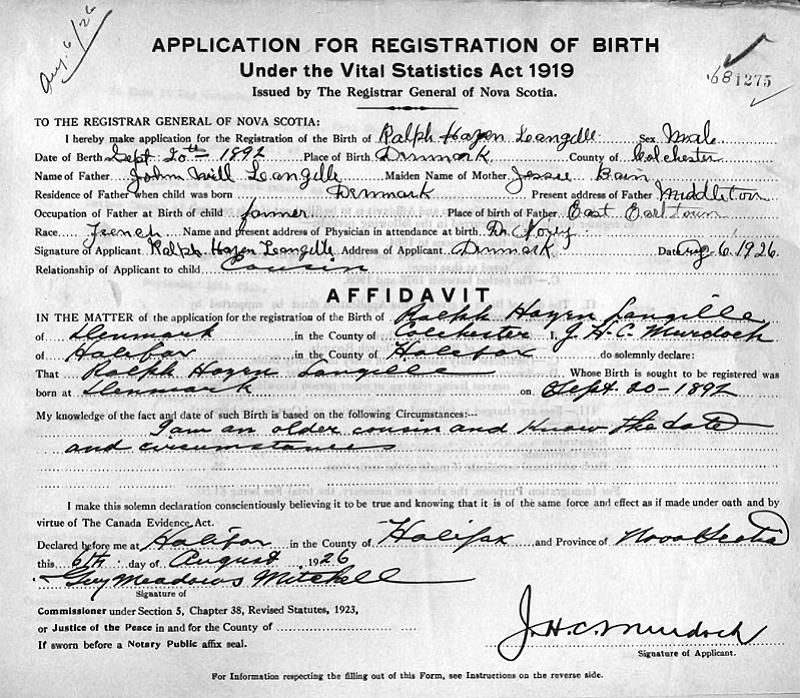 Aug. 6/26
APPLICATION FOR REGISTRATION OF BIRTH
Under the Vital Statistics Act 1919
Issued by The Registrar General of Nova Scotia.
68 1275
TO THE REGISTRAR GENERAL OF NOVA SCOTIA:
I hereby make application for the Registration of the Birth of Ralph Hazen Langille Sex Male
Date of Berth Sept 20th 1892 Place of Birth Denmark County of Colchester
Name of Father John Will Langille Maiden Name of Mother Jessie Bain
Residence of Father when child was born Denmark Present address of Father Middleton
Occupation of Father at Birth of child farmer Place of birth of Father East Earltown
Race French Name and present address of Physician in attendance at birth Dr
Signature of Applicant Ralph Hazen Langille Address of Applicant Denmark Date Aug 6 1926
Relationship of Applicant to child Cousin
AFFIDAVIT
IN THE MATTER of the application for the registration of the Birth of Ralph Hazen Langille
of Denmark in the County of Colchester I, J. H. C. Murdoch
of Halifax in the County of Halifax do solemnly declare:
That Ralph Hazen Langille Whose Birth is sought to be registered was
born at Denmark on Sept. 20 - 1892
My knowledge of the fact and date of such Birth is based on the following Circumstances:--
I am an older cousin and know the date
and circumstances
I make this solemn declaration conscientiously believing it to be true and knowing that it is of the same force and effect as if made under oath and by
virtue of The Canada Evidence Act.
Declared before me at Halifax in the County of Halifax and Province of Nova Scotia
this 6th day of August 1926
Guy Meadows Mitchell
Signature of
Commissioner under Section 5, Chapter 38, Revised Statutes, 1923,
or Justice of the Peace in and for the County of
If sworn before a Notary Public affix seal.
J. H. C. Murdoch
Signature of Applicant.
For Information respecting the filling out of this Form, see Instructions on the reverse side.